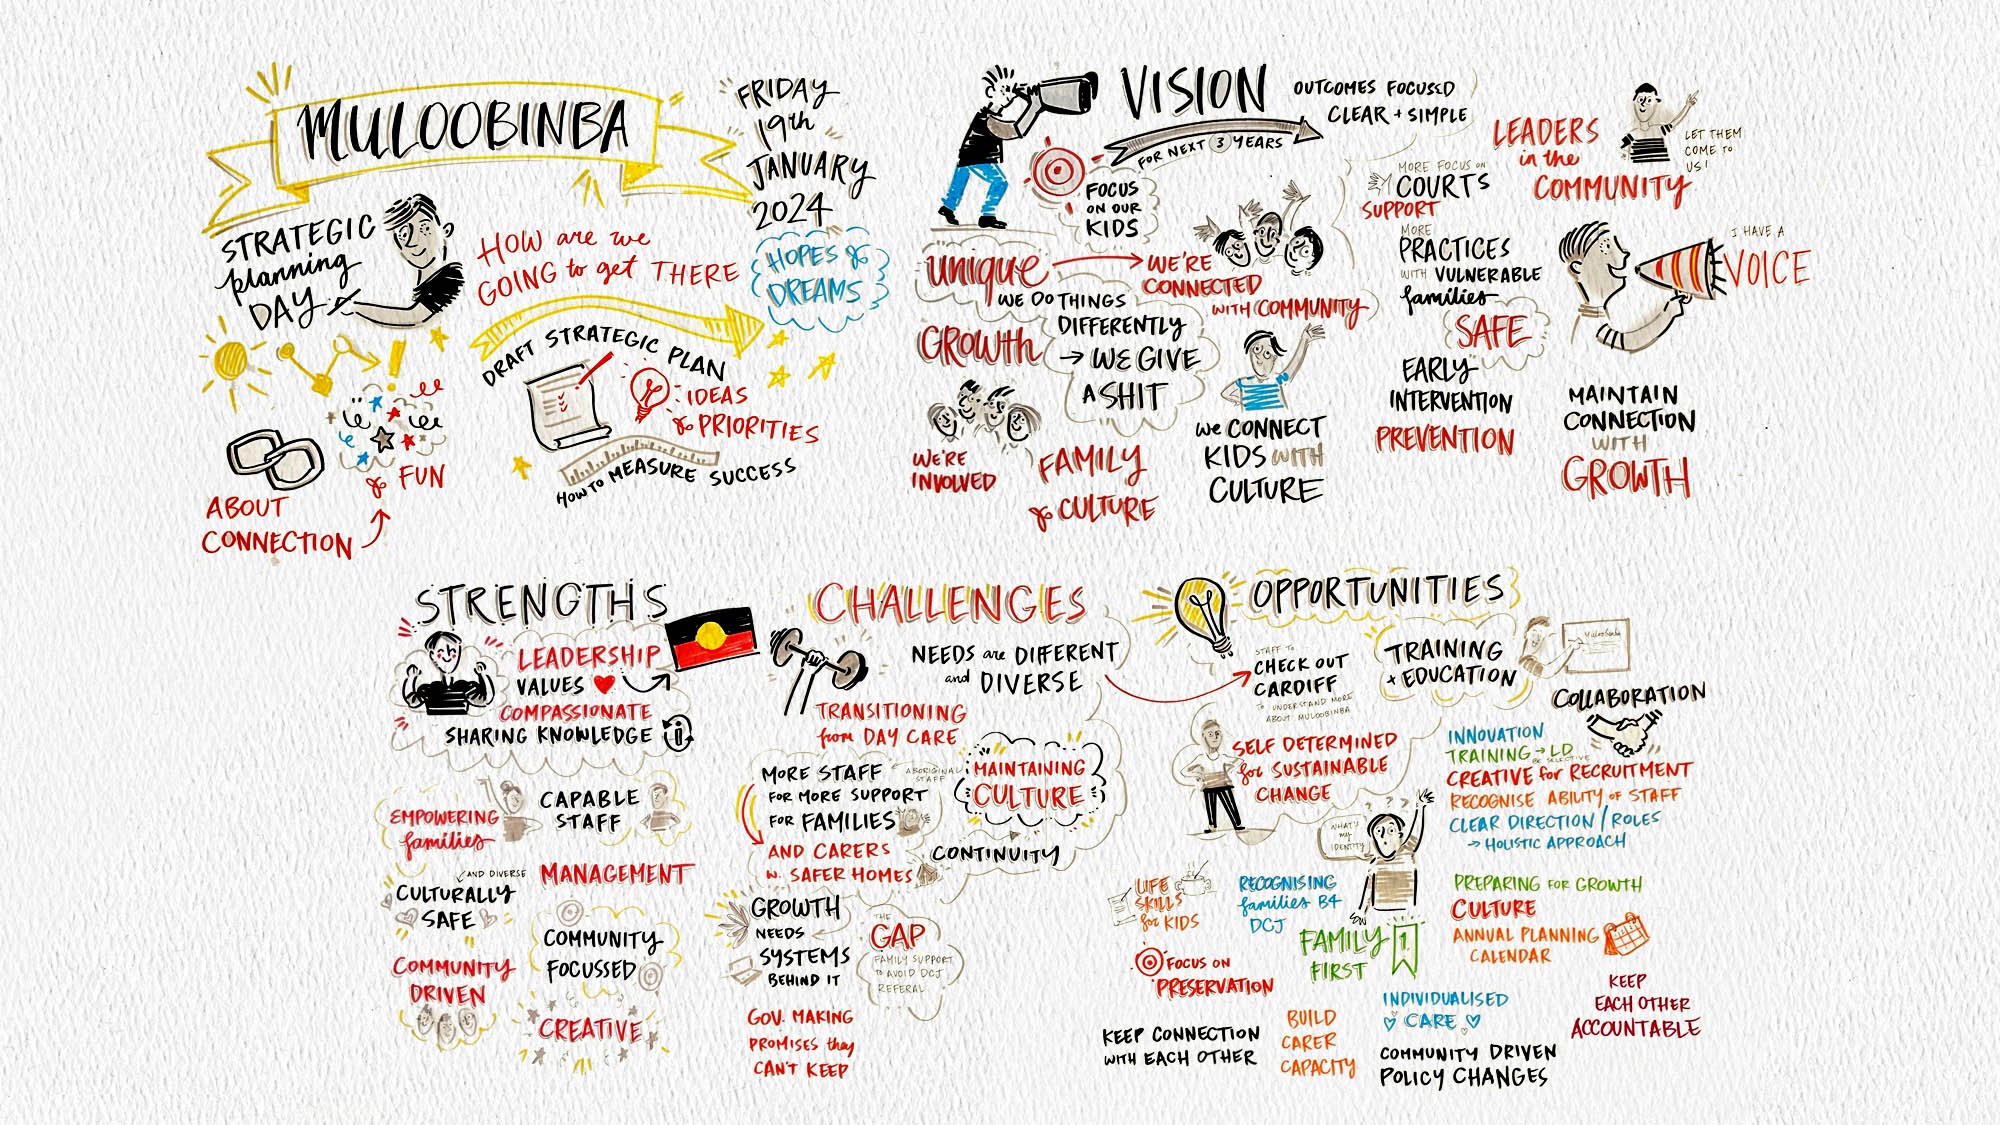 MULOOBINBA
FRIDAY
19th
JANUARY
2024
STRATEGIC
planning
DAY
HOW are we
GOING to get THERE
HOPES &
DREAMS
DRAFT STRATEGIC PLAN
IDEAS
& PRIORITIES
HOW TO MEASURE SUCCESS
& FUN
ABOUT
CONNECTION
VISION
FOR NEXT 3 YEARS
OUTCOMES FOCUSED
CLEAR + SIMPLE
FOCUS
ON OUR
KIDS
unique
WE'RE
CONNECTED
WITH COMMUNITY
WE DO THINGS
DIFFERENTLY
→ WE GIVE
A SHIT
GROWTH
WE'RE
INVOLVED
FAMILY
& CULTURE
we CONNECT
KIDS WITH
CULTURE
LEADERS
in the
COMMUNITY
LET THEM
COME TO
US!
MORE FOCUS ON
COURTS
SUPPORT
MORE
PRACTICES
WITH VULNERABLE
families
SAFE
EARLY
INTERVENTION
PREVENTION
I HAVE A
VOICE
MAINTAIN
CONNECTION
WITH
GROWTH
STRENGTHS
LEADERSHIP
VALUES
COMPASSIONATE
SHARING KNOWLEDGE
i
EMPOWERING
families
CAPABLE
STAFF
AND DIVERSE
CULTURALLY
SAFE
MANAGEMENT
COMMUNITY
FOCUSSED
COMMUNITY
DRIVEN
CREATIVE
CHALLENGES
NEEDS are DIFFERENT
and DIVERSE
TRANSITIONING
from DAY CARE
MORE STAFF
FOR MORE SUPPORT
FOR FAMILIES
ABORIGINAL
STAFF
AND CARERS
w. SAFER HOMES
MAINTAINING
CULTURE
CONTINUITY
GROWTH
NEEDS
SYSTEMS
BEHIND IT
THE
GAP
FAMILY SUPPORT
TO AVOID DCJ
REFERAL
GOV. MAKING
PROMISES they
CAN'T KEEP
OPPORTUNITIES
STAFF TO
CHECK OUT
CARDIFF
TO UNDERSTAND MORE
ABOUT MULOOBINBA
TRAINING
+ EDUCATION
Muloobinba
COLLABORATION
SELF DETERMINED
for SUSTAINABLE
CHANGE
INNOVATION
TRAINING → LD
BE SELECTIVE
CREATIVE for RECRUITMENT
RECOGNISE ABILITY of STAFF
CLEAR DIRECTION / ROLES
→ HOLISTIC APPROACH
? ? ?
WHAT'S
MY
IDENTITY
LIFE
SKILLS
for KIDS
RECOGNISING
families B4
DCJ
FAMILY
FIRST
1
PREPARING FOR GROWTH
CULTURE
ANNUAL PLANNING
CALENDAR
FOCUS ON
PRESERVATION
INDIVIDUALISED
CARE
KEEP
EACH OTHER
ACCOUNTABLE
KEEP CONNECTION
WITH EACH OTHER
BUILD
CARER
CAPACITY
COMMUNITY DRIVEN
POLICY CHANGES